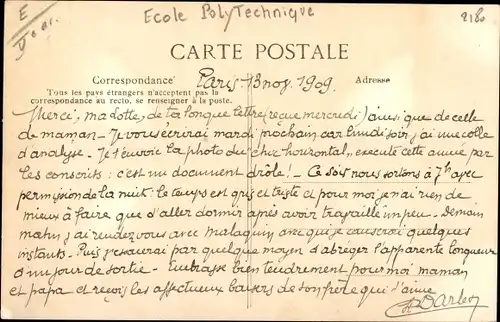 E
Ecole PolyTechnique
CARTE POSTALE
Correspondance
Paris 13 nov. 1909.
Adresse
Tous les pays étrangers n'acceptent pas la
correspondance au recto, se renseigner à la poste.
Merci, ma dotte, de ta longue lettre (reçue mercredi) ainsi que de celle
de maman - Je vous écrirai mardi prochain car lundi soir, j'ai une colle
d'analyse - Je t'envoie la photo du "chic horizontal", exécuté cette année par
les conscrits: c'est un document drôle! - Ce soir nous sortons à 7h avec
permission de la nuit: le temps est gris et triste et pour moi je n'ai rien de
mieux à faire que d'aller dormir après avoir travaillé un peu. Demain
matin j'ai rendez vous avec Malaquin avec qui je causerai quelques
instants. Puis j'essaierai par quelque moyen d'abréger l'apparente longueur
d'un jour de sortie - Embrasse bien tendrement pour moi maman
et papa et reçois les affectueux baisers de ton frère qui t'aime